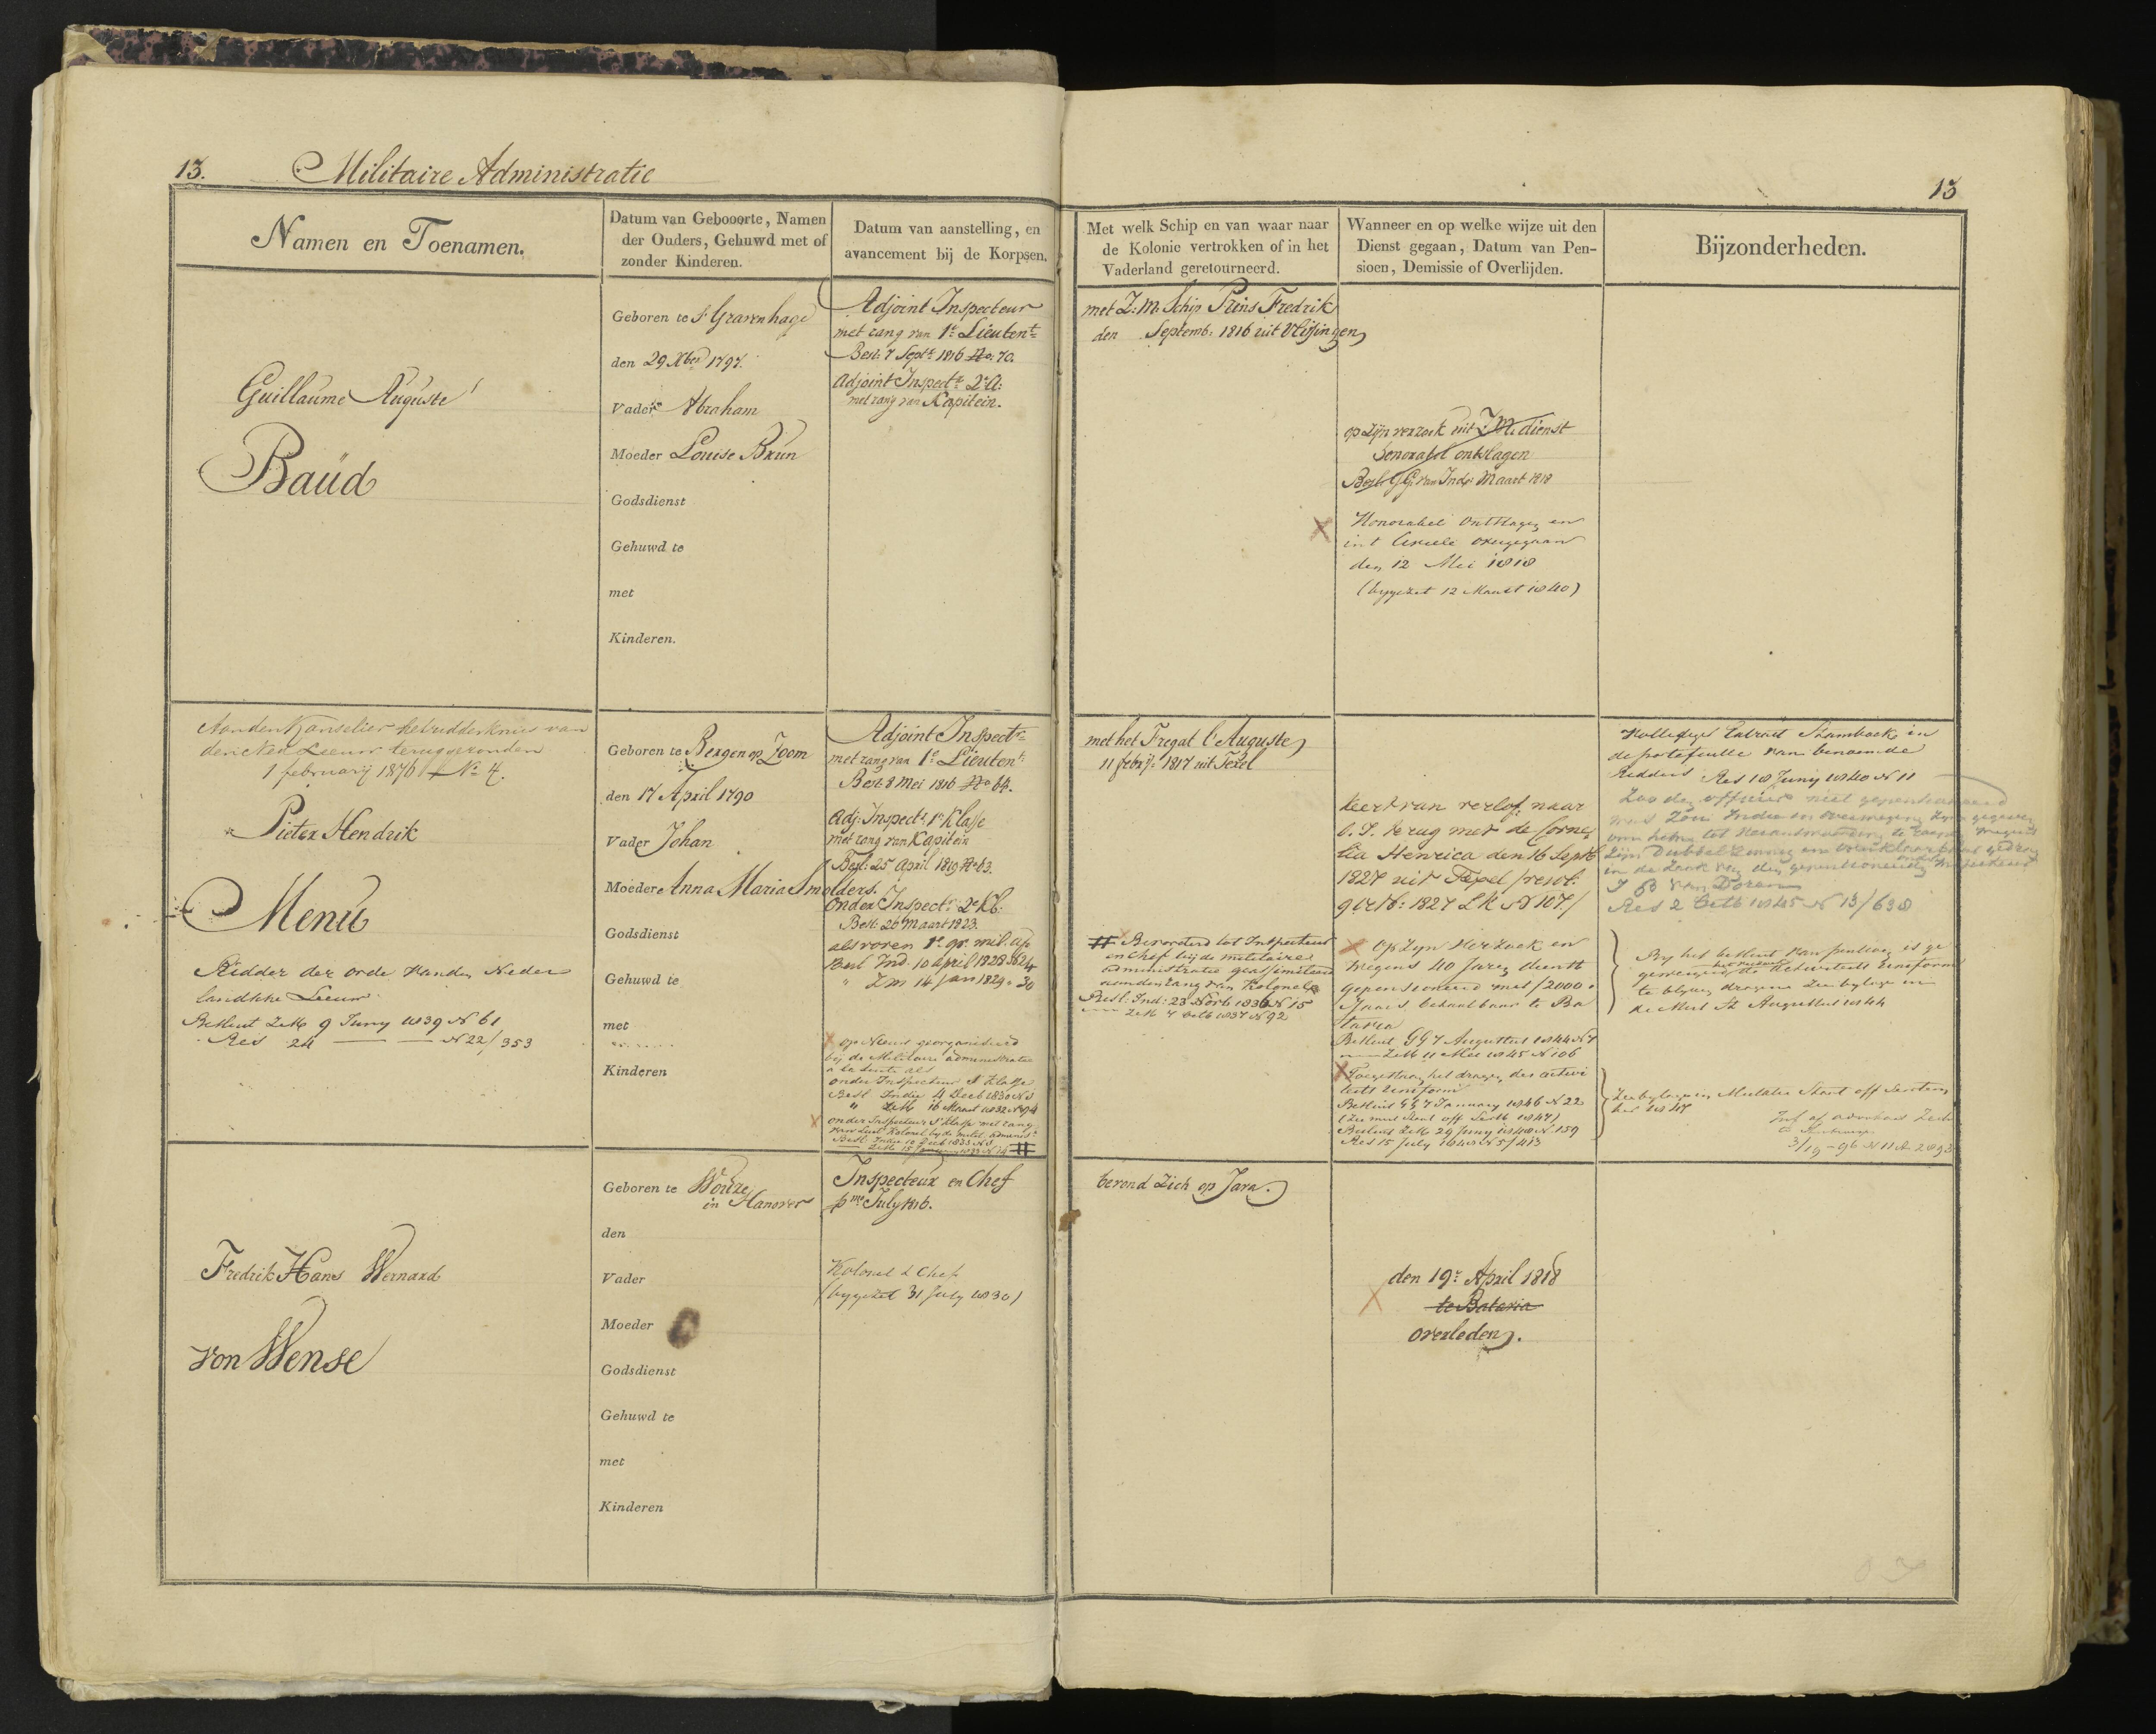 13. Militaire Administratie
13
Namen en Toenamen.
Datum van Gebooorte, Namen
der Ouders, Gehuwd met of
zonder Kinderen.
Datum van aanstelling, en
avancement bij de Korpsen.
Met welk Schip en van waar naar
de Kolonie vertrokken of in het
Vaderland geretourneerd.
Wanneer en op welke wijze uit den
Dienst gegaan, Datum van Pen-
sioen, Demissie of Overlijden.
Bijzonderheden.
Guillaume Auguste
Baud
Geboren te s'Gravenhage
den 29 Xber 1797.
Vader Abraham
Moeder Louise Brun
Godsdienst
Gehuwd te
met
Kinderen.
Adjoint Inspecteur
met rang van 1e Lieutent
Besl: 7 Sept 1816 No. 70.
Adjoint Inspectr 2e A:
met rang van Kapitein.
met Z: M: Schip Prins Fredrik
den Septemb: 1816 uit Vlissingen
op zijn verzoek uit Z M: dienst
honorabel ontslagen
Besl: GG van Inde Maart 1818
Honorabel Ontslagen en
int Civiele overgegaan
den 12 Mei 1818
(bygezet 12 Maart 1840)
Aan den Kanselier het ridderkruis van
den Ned Leeuw teruggezonden
1 february 1876 No 4.
Pieter Hendrik
Menu
Ridder der orde van den Neder
landsche Leeuw
Besluit ZM 9 Juny 1839 N 61
Res 24 — — N 22/353
Geboren te Bergen op Zoom
den 17 April 1790
Vader Johan
Moeder Anna Maria Smolders.
Godsdienst
Gehuwd te
met
Kinderen
Adjoint Inspectr
met rang van 1e Lieutent
Besl: 8 Mei 1816 No 64.
Adj: Inspectr 1e Klasse
met rang van Kapitein
Besl: 25 April 1819 No 3.
Onder Inspectr 2e Kl:
Besl: 26 Maart 1823.
als voren 1e gr. mil. ap
Besl Ind. 10 April 1828 No 24
" ZM 14 Jan 1829 " 30
op Nieuw georganiseerd
bij de Militaire administratie
onder Inspecteur 1 Klasse
Besl Indie 4 Decb 1830 N 3
" ZM 16 Maart 1832 N 94
onder Inspecteur 1 Klasse met rang
van Luit Kolonel by de milit. adminis
met het Fregat l'Auguste
11 febrij: 1817 uit Texel
# Bevorderd tot Inspecteur
en Chef bij de militaire
administratie geassimileerd
aan den rang van Kolonel
Besl: Ind: 23 Novb 1836 N 15
ZM 4 Octb 1837 N 92
Keert van verlof naar
O. I. terug met de Corne
lia Henrica den 16 Septb
1827 uit Texel / resol:
9 Octb: 1827 L K No 107/
Op zyn Verzoek en
wegens 40 Jaren dienst
gepensioneerd met f 2000
Jaars betaalbaar te Ba
tavia
Besluit GG 7 Augustus 1844 N 1
ZM 11 Mei 1845 N 106
Toegestaan het dragen der activi
teits Uniform
Besluit GG 7 January 1846 N 22
(Zie mut Staat off Septb 1847)
Besluit ZM 29 Juny 1848 N 159
Res 15 July 1848 N 5/413
Volledige Extract Stamboek in
de portefeuille van benoemde
Ridders Res 18 Juny 1840 N 11
Zoo den officier niet gepensioneerd
J B van Doren
Res 2 Octb 1845 N 13/638
By het besluit van pensioen is ge
te blyven dragen Zie bylage in
de Mut St Augustus 1844
Zie bylage in Mutatie Staat off Septem
ber 1847
Fredrik Hans Wernard
von Wense
Geboren te Woltze
in Hanover
den
Vader
Moeder
Godsdienst
Gehuwd te
met
Kinderen
Inspecteur en Chef
pmo July 1816.
Kolonel & Chef
(bygezet 31 July 1830)
bevond zich op Java.
den 19e April 1818
te Batavia
overleden.